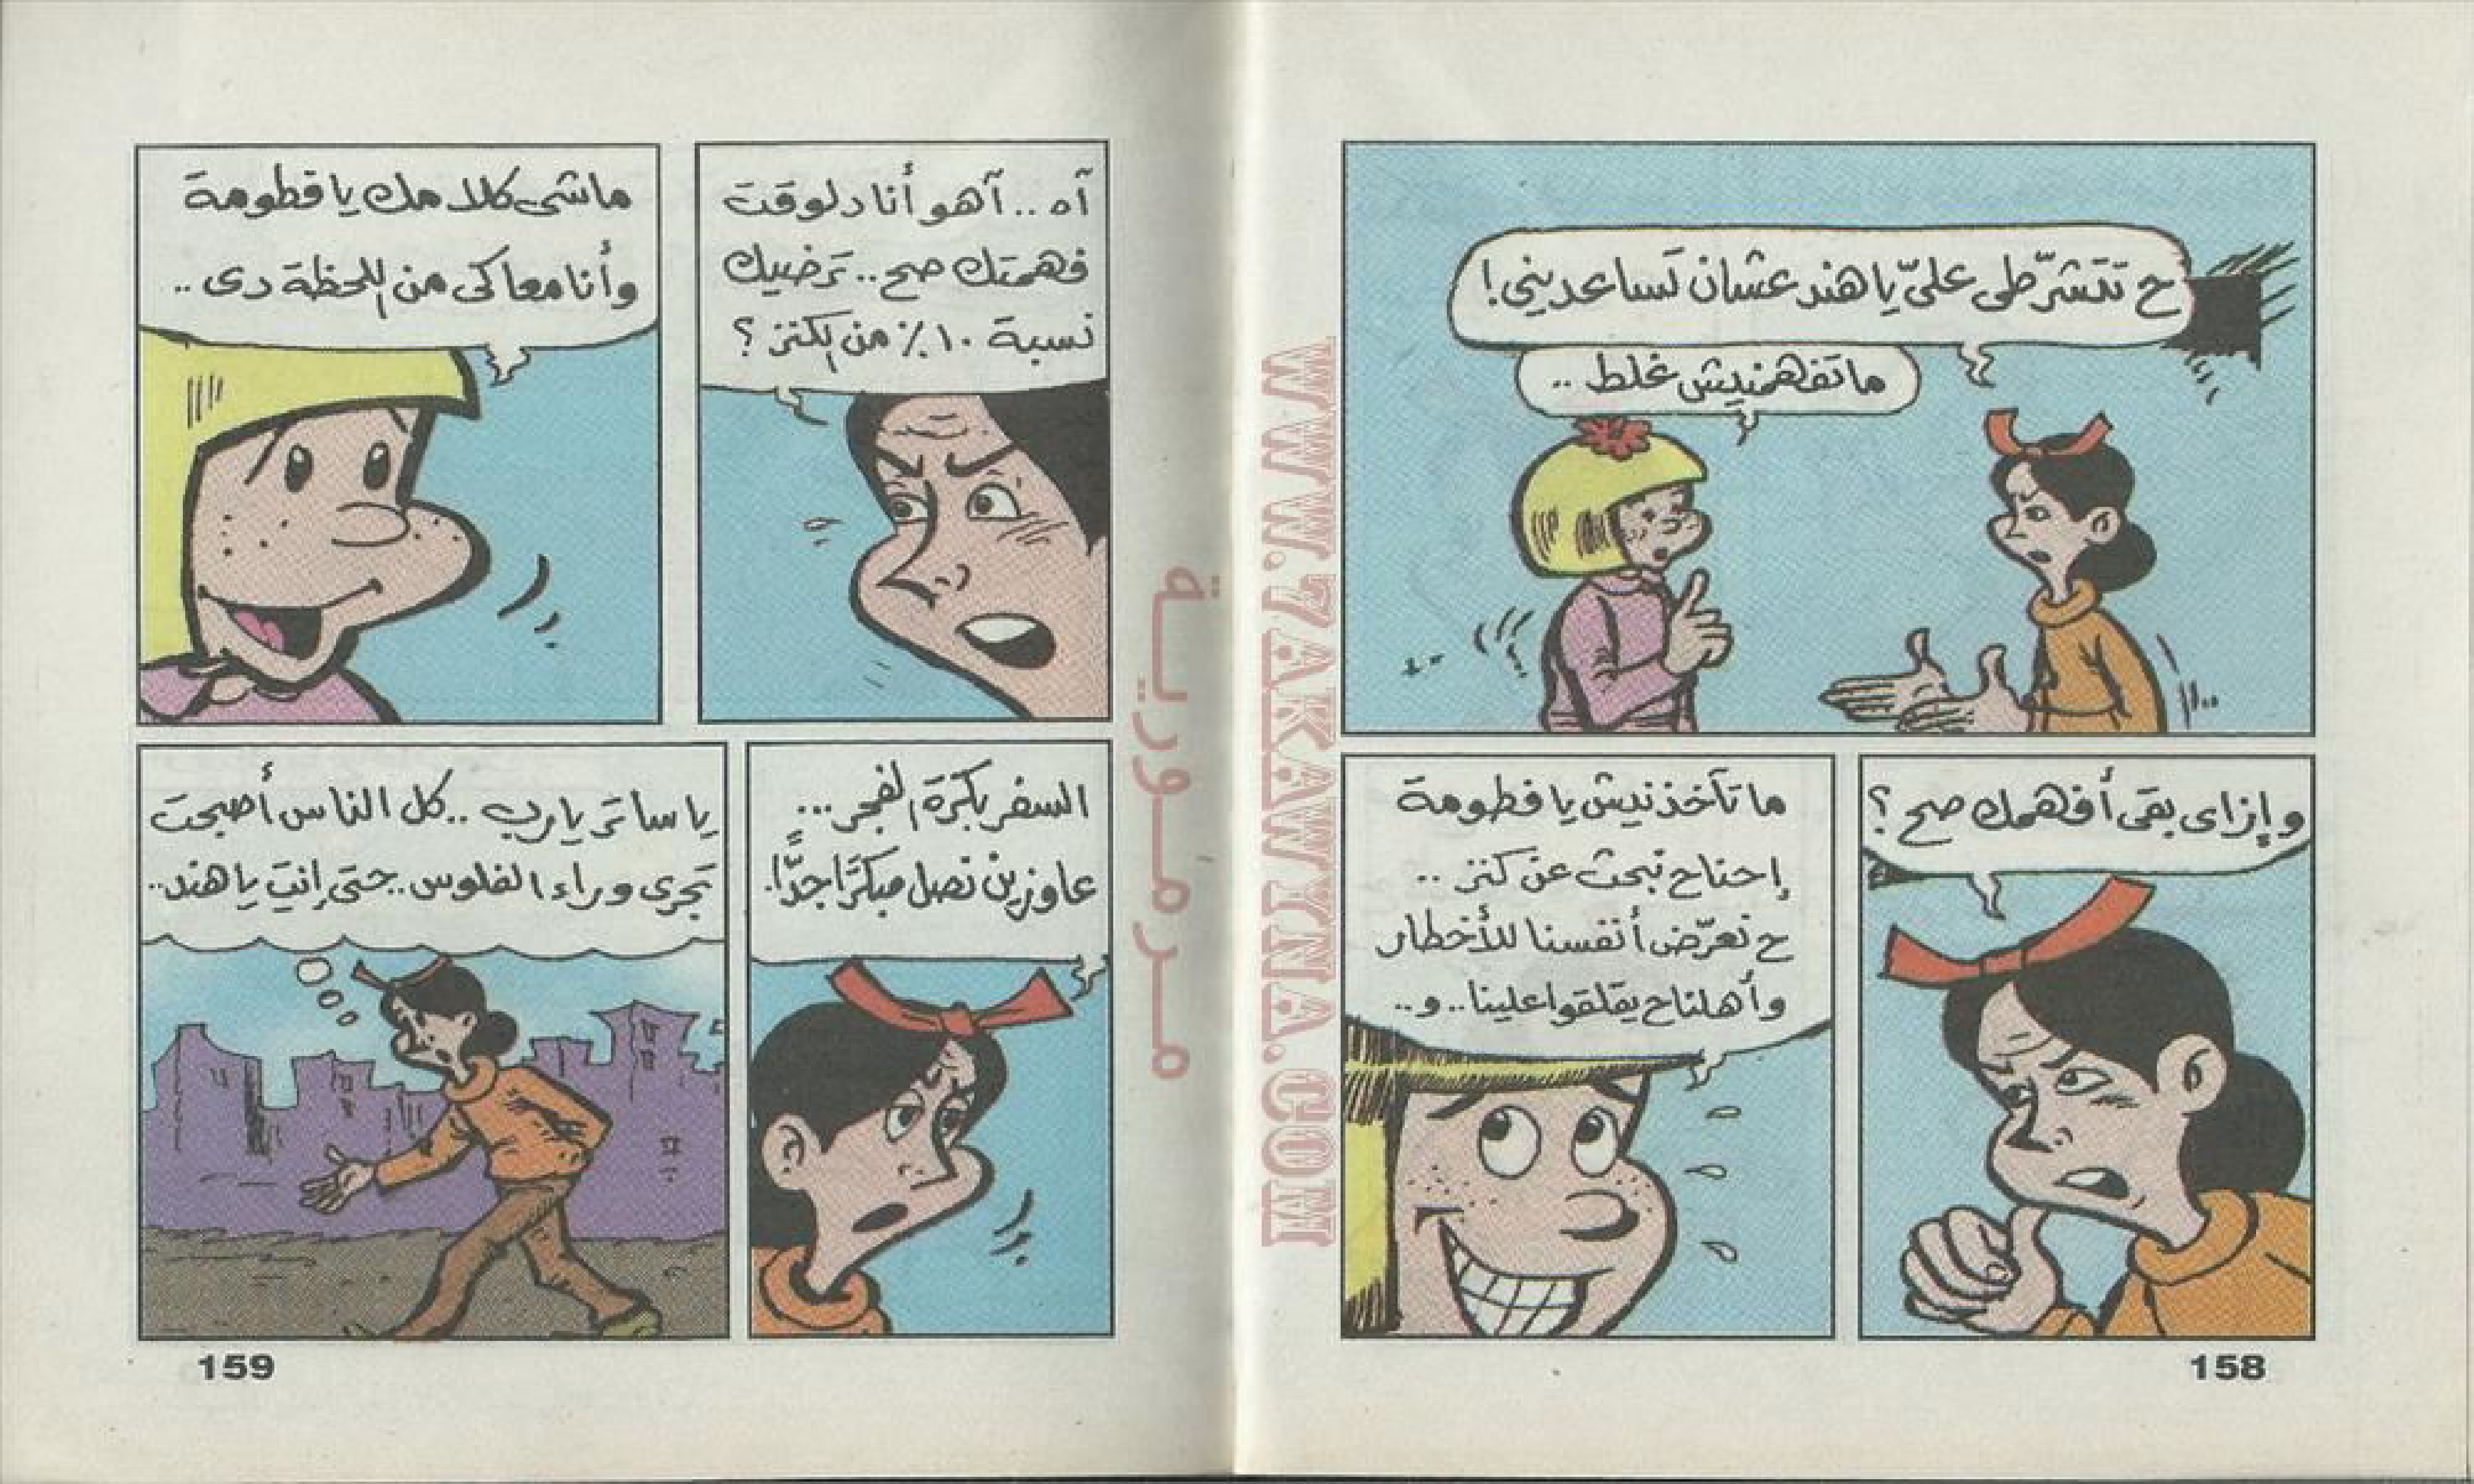 ح تتشرّطى علىّ يا هند عشان تساعدينى!
ماتفهمنيش غلط ..
وإزاى بقى أفهمك صح ؟
ما تآخذنيش يا فطومة
إحنا ح نبحث عن كنز ..
ح نعرّض أنفسنا للأخطار
وأهلنا ح يقلقوا علينا .. و ..
158
آه .. آهو أنا دلوقت
فهمتك صح .. ترضيك
نسبة ١٠٪ من الكنز ؟
ماشى كلامك يا فطومة
وأنا معاكى من اللحظة دى ..
السفر بكرة الفجر ...
عاوزين نصل مبكرًا جدًّا.
يا ساتر يارب .. كل الناس أصبحت
تجرى وراء الفلوس .. حتى إنتِ يا هند ..
159
مرمورية
WWW.7AKAWYNA.COM